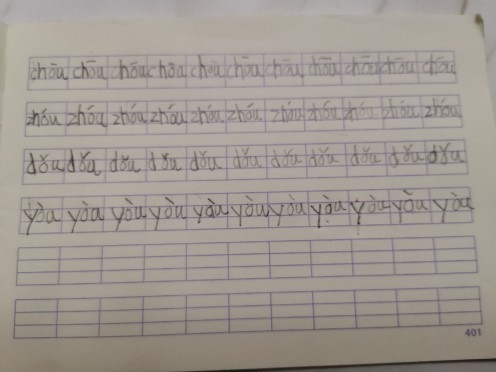 chōu chōu chóu chōu chōu chōu chōu chōu chōu chōu chōu
zhóu zhóu zhóu zhóu zhóu zhóu zhóu zhóu zhóu zhóu zhóu
dǒu dǒu dǒu dǒu dǒu dǒu dǒu dǒu dǒu dǒu dǒu
yòu yòu yòu yòu yòu yòu yòu yòu yòu yòu yòu
401